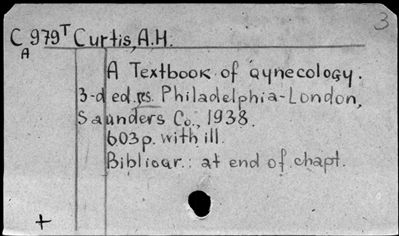 3
C 979T Curtis, A.H.
A
A Textbook of gynecology.
3-d ed. rs. Philadelphia-London,
Saunders Co., 1938.
603p. with ill.
Bibliogr.: at end of chapt.
+